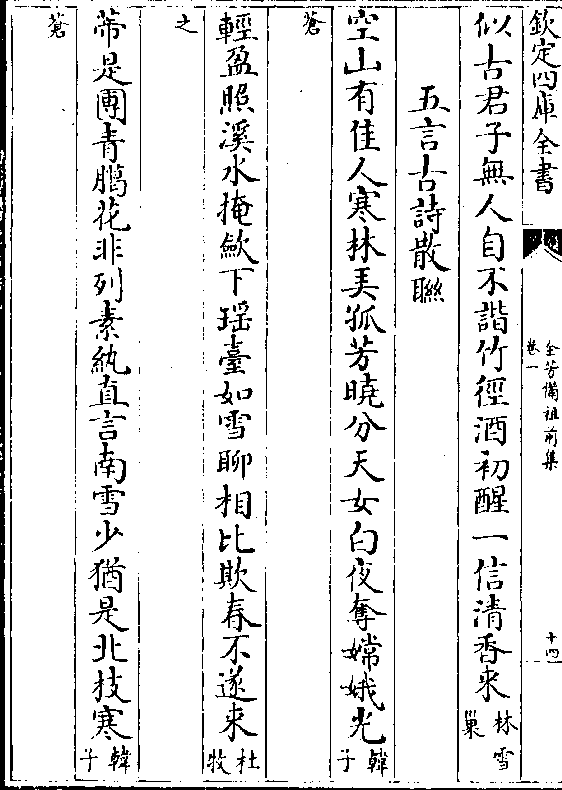 欽定四庫全書
全芳備祖前集
卷一
十四
似古君子無人自不諧竹徑酒初醒一信清香来林雪
巢
五言古詩散聯
空山有佳人寒林美孤芳曉分天女白夜奪嫦娥光韓子
蒼
輕盈照溪水掩歛下瑶臺如雪聊相比欺春不遂来杜牧
之
蒂是團青臈花非列素紈直言南雪少猶是北枝寒韓子
蒼